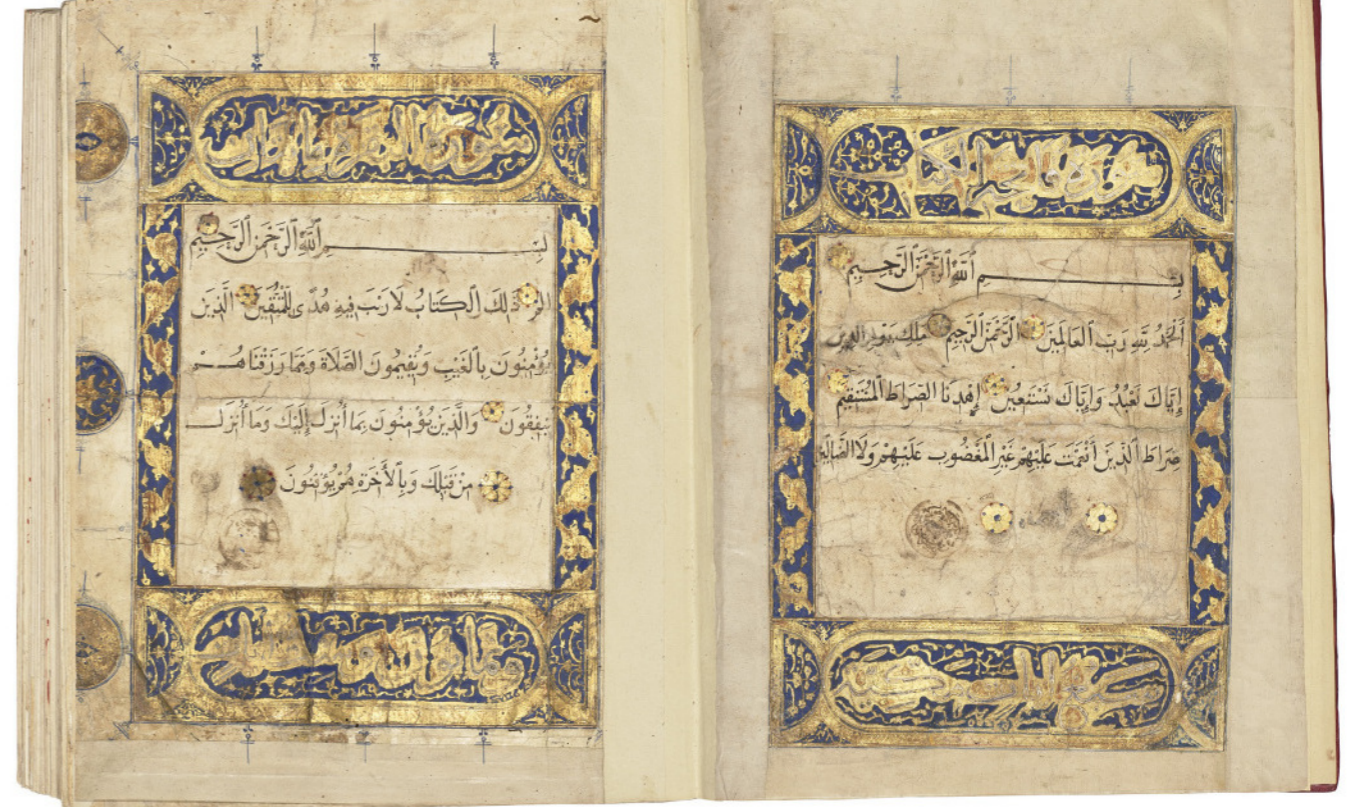 سورة فاتحة الكتاب
بِسْمِ ٱللَّهِ ٱلرَّحْمٰنِ ٱلرَّحِيمِ
ٱلْحَمْدُ لِلَّهِ رَبِّ ٱلْعَالَمِينَ ٱلرَّحْمٰنِ ٱلرَّحِيمِ مَلِكِ يَوْمِ ٱلدِّينِ
إِيَّاكَ نَعْبُدُ وَإِيَّاكَ نَسْتَعِينُ إِهْدِنَا ٱلصِّرَاطَ ٱلْمُسْتَقِيمَ
صِرَاطَ ٱلَّذِينَ أَنْعَمْتَ عَلَيْهِمْ غَيْرِ ٱلْمَغْضُوبِ عَلَيْهِمْ وَلَا ٱلضَّالِّينَ
سورة البقرة
بِسْمِ ٱللَّهِ ٱلرَّحْمٰنِ ٱلرَّحِيمِ
الم ذَلِكَ ٱلْكِتَابُ لَا رَيْبَ فِيهِ هُدًى لِلْمُتَّقِينَ ٱلَّذِينَ
يُؤْمِنُونَ بِٱلْغَيْبِ وَيُقِيمُونَ ٱلصَّلَاةَ وَمِمَّا رَزَقْنَاهُمْ
يُنْفِقُونَ وَٱلَّذِينَ يُؤْمِنُونَ بِمَا أُنْزِلَ إِلَيْكَ وَمَا أُنْزِلَ
مِنْ قَبْلِكَ وَبِٱلْأَخِرَةِ هُمْ يُوقِنُونَ